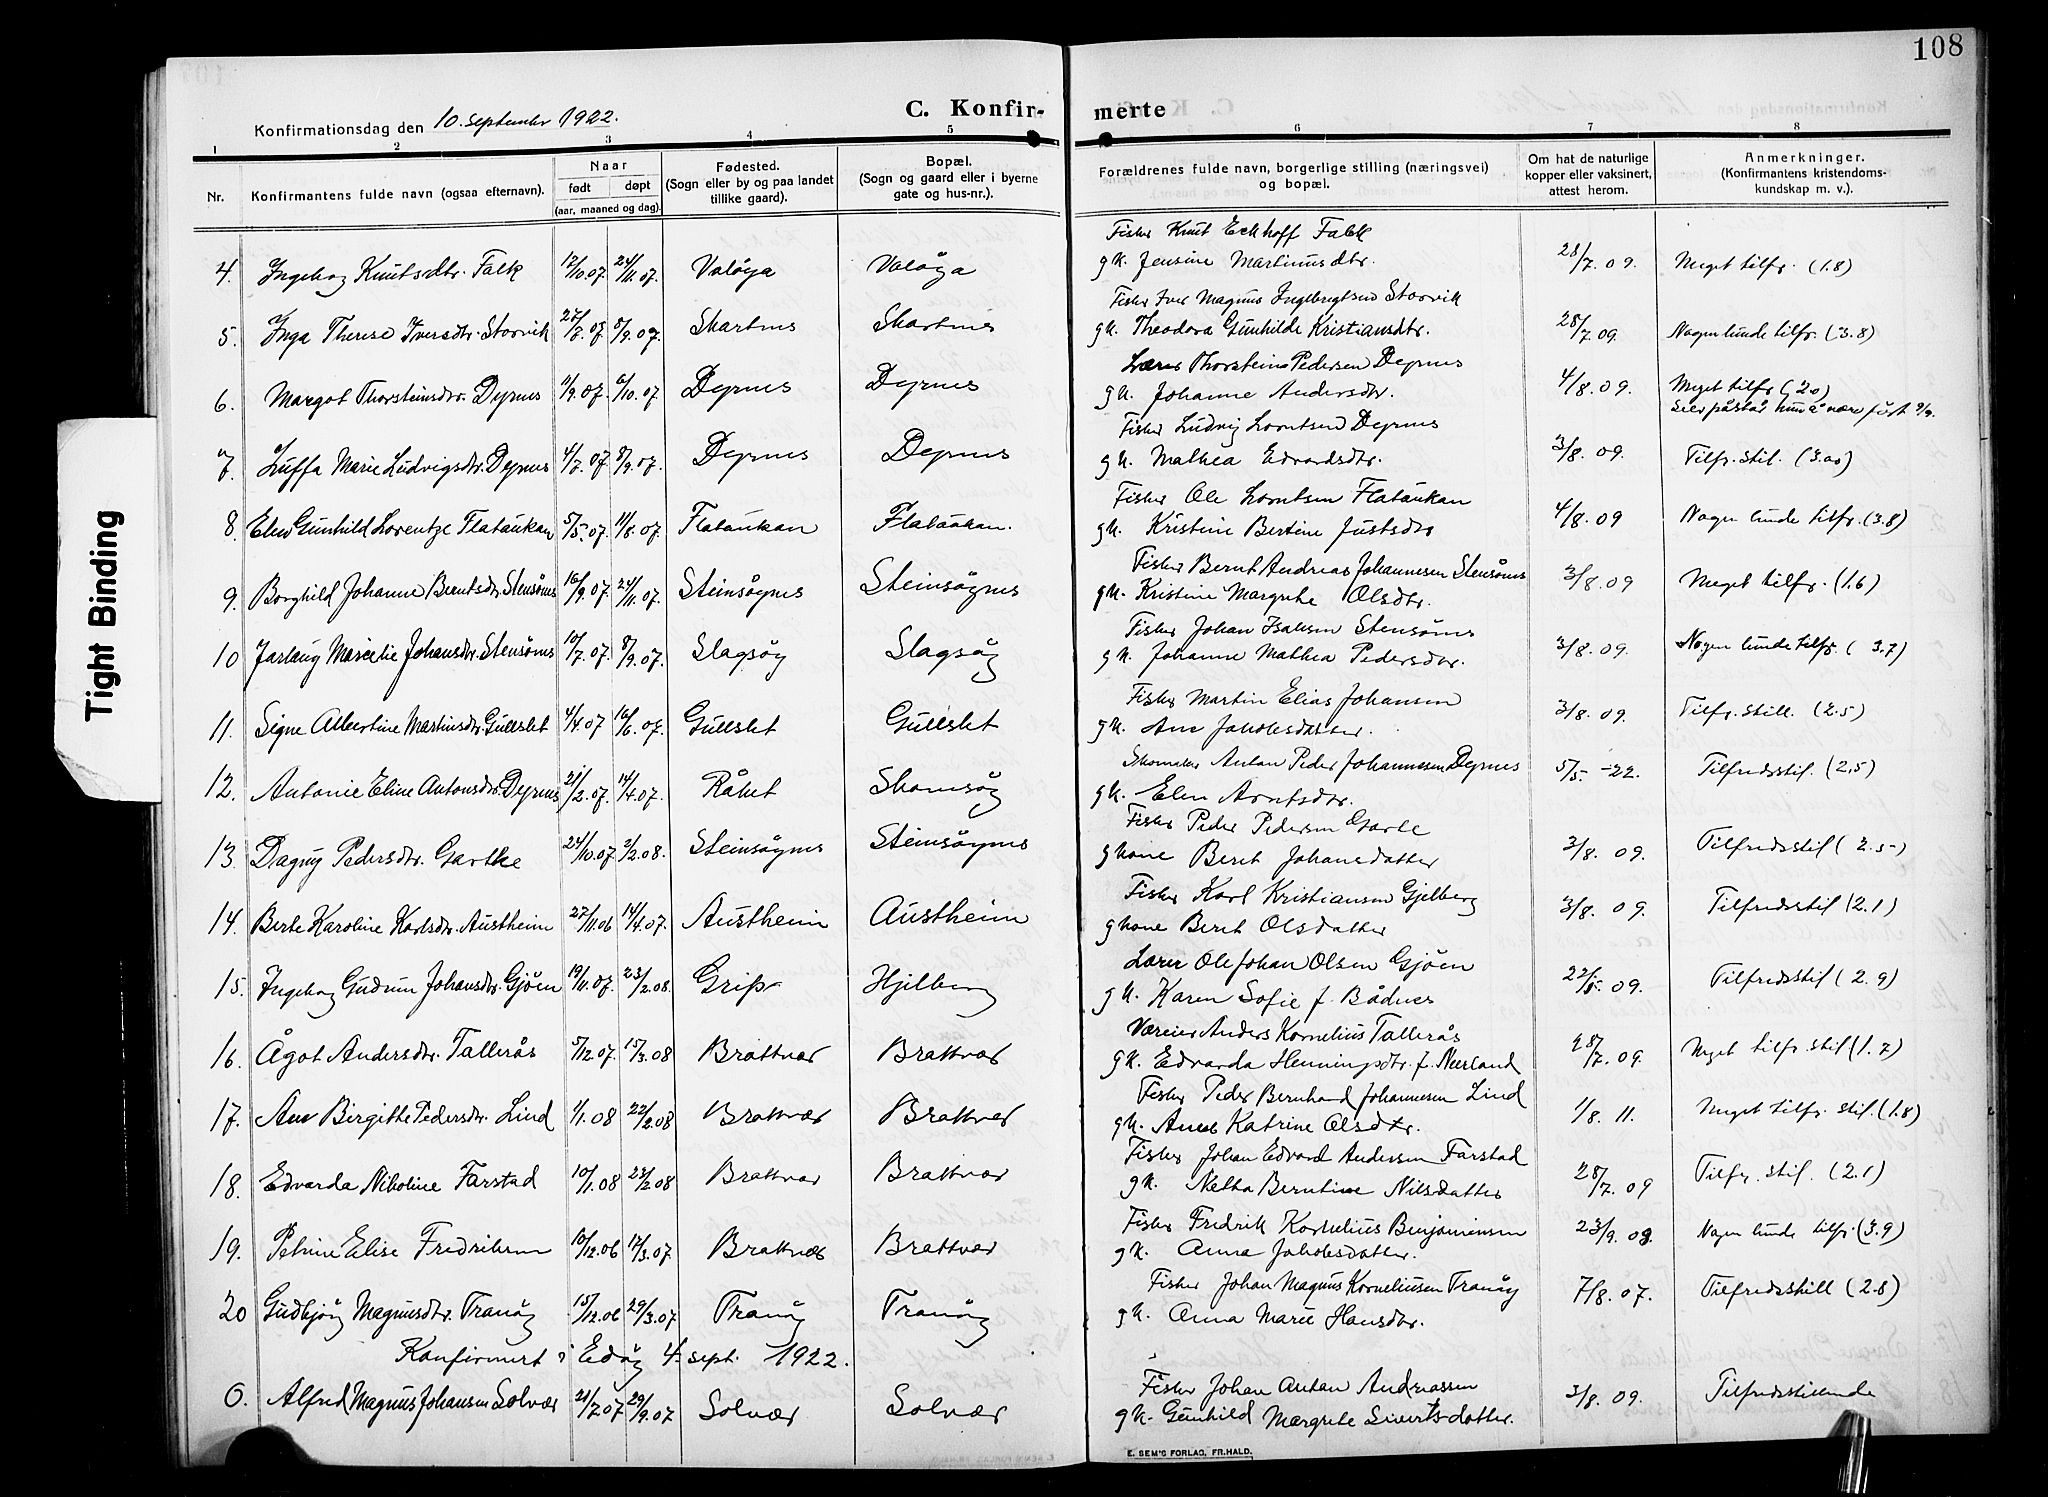 108
Konfirmationsdag den 10. september 1922.
C. Konfir-
merte
1 2 3 4 5 6 7 8
Nr.
Konfirmantens fulde navn (ogsaa efternavn).
Naar
født døpt
(aar, maaned og dag).
Fødested.
(Sogn eller by og paa landet
tillike gaard).
Bopæl.
(Sogn og gaard eller i byerne
gate og hus-nr.).
Forældrenes fulde navn, borgerlige stilling (næringsvei)
og bopæl.
Om hat de naturlige
kopper eller vaksinert,
attest herom.
Anmerkninger.
(Konfirmantens kristendoms-
kundskap m. v.).
Fisker Knut Eckhoff Falck
4. Ingeborg Knutsdtr. Falk 12/10.07. 24/11.07. Valöya Valöya gk. Jensine Martinusdtr. 28/7.09. Meget tilfr. (1.8)
Fisker Iver Magnus Ingebrigtsen Storvik
5. Inga Therese Iversdtr. Storvik 27/7.07 8/9.07. Skartnes Skartnes gk. Theodora Gunhilde Kristiansdtr. 28/7.09. Nogen lunde tilfr. (3.8)
Lærer Thorstein Pedersen Dyrnes
6. Margot Thorsteinsdtr. Dyrnes 11/9.07. 6/10.07 Dyrnes Dyrnes gk. Johanne Andersdtr. 4/8.09. Meget tilfr (2.0)
Selv påstår hun å være født 9/9.
Fisker Ludvig Lorntsen Dyrnes
7. Luffa Marie Ludvigsdtr. Dyrnes 4/7.07 8/9.07. Dyrnes Dyrnes gk. Mathea Edvardsdtr. 3/8.09. Tilfr. stil. (3.00)
Fisker Ole Lorntsen Flataukan
8. Elen Gunhild Lorentze Flataukan 5/5.07. 11/8.07. Flataukan Flataukan. gk. Kristine Bertine Justsdtr 4/8.09 Nogen lunde tilfr. (3.8)
Fisker Bernt Andreas Johannesen Stensönes
9. Borghild Johanne Berntsdtr. Stensönes 16/9.07. 24/11.07. Steinsöynes Steinsöynes gk. Kristine Margrethe Olsdtr. 3/8.09 Meget tilfr. (1.6)
Fisker Johan Isaksen Stensönes
10 Jarlaug Marcelie Johansdtr. Stensönes 10/7.07. 8/9.07. Slagsöy Slagsöy gk. Johanne Mathea Pedersdtr. 3/8.09. Nogen lunde tilfr. (3.7)
Fisker Martin Elias Johansen
11. Signe Albertine Martinsdtr. Gullslet 4/4.07 16/6.07. Gullslet Gullslet gk. Ane Jakobsdatter. 3/8.09. Tilfr. still. (2.5)
Skomaker Anton Peder Johannesen Dyrnes
12. Antonie Eline Antonsdtr. Dyrnes 21/2.07. 14/4.07. Råket Skomsöy gk. Elen Arntsdtr. 5/5.-22. Tilfredsstil. (2.5)
Fisker Peder Pedersen Garle
13. Dagny Pedersdtr. Garthe 24/10.07 2/2.08. Steinsöynes Steinsöynes gkone Beret Johansdatter 3/8.09. Tilfredsstil (2.5)
Fisker Karl Kristiansen Gjelberg
14. Berte Karoline Karlsdtr. Austheim 27/11.06 14/4.07. Austheim Austheim gkone Berit Olsdatter 3/8.09. Tilfredsstil (2.1)
Lærer Ole Johan Olsen Gjöen
15. Ingeborg Gudrun Johansdtr. Gjöen 19/11.07. 23/2.08. Grip Hjelberg gk. Karen Sofie f. Bådnes 22/5.09. Tilfredsstil (2.9)
Væreier Anders Kornelius Tallerås
16. Ågot Andersdtr. Tallerås 5/12.07. 15/3.08 Brattvær Brattvær gk. Edvarda Henningsdtr. f. Neerland 28/7.09. Meget tilfr. stil (1.7)
Fisker Peder Bernhard Johannesen Lind
17. Ane Birgithe Pedersdtr. Lind 1/1.08 22/2.08 Brattvær Brattvær gk. Anne Katrine Olsdtr. 1/8.11. Meget tilfr. stil. (1.8)
Fisker Johan Edvard Andersen Farstad
18. Edvarda Nikoline Farstad 10/1.08 23/2.08 Brattvær Brattvær gk. Netha Berntine Nilsdatter 28/7.09 Tilfr. stil. (2.1)
Fisker Fredrik Kornelius Benjaminsen
19. Petrine Elise Fredriksen 10/12.06 17/3.07. Brattvær Brattvær gk. Anna Jakobsdatter. 23/9.09. Nogen lunde tilfr (3.9)
Fisker Johan Magnus Korneliusen Tranöy
20 Gudbjörg Magnusdtr. Tranöy 15/12.06 29/3.07 Tranöy Tranöy gk. Anna Marie Hansdtr. 7/8.07. Tilfredsstill (2.8)
Konfirmert i Edöy 4. sept. 1922.
Fisker Johan Anton Andreassen
0. Alfred Magnus Johansen Solvær 21/7.07 29/9.07 Solvær Solvær gk. Gunhild Margrete Sivertsdatter. 3/8.09. Tilfredsstillende
E. SEM'S FORLAG, FR.HALD.
Tight Binding